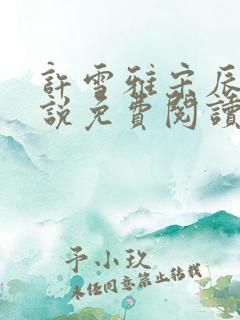 許雪雅宋辰
說免費閱讀
予小玖
未經同意禁止轉載